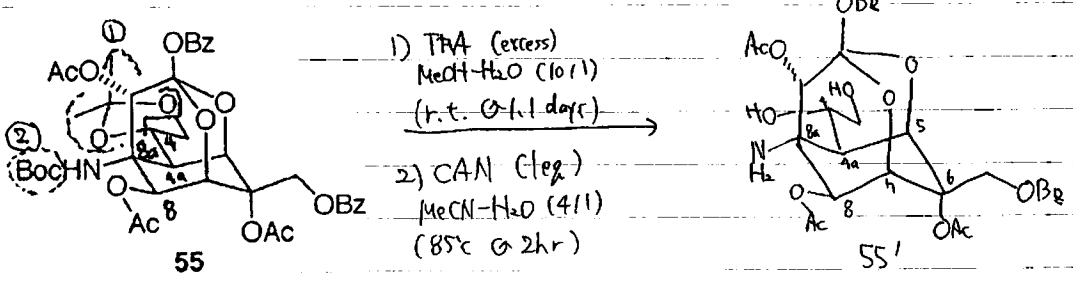 ①
OBz
AcO
O
O
O
O
4
② 
O
8a
BocHN
4a
O
Ac
8
OBz
OAc
55
1) TFA (excess)
MeOH-H2O (10/1)
(r.t. @ 1.1 days)
2) CAN (1eq)
MeCN-H2O (4/1)
(85℃ @ 2hr)
OBz
AcO
O
HO
O
HO
5
8a
4a
N
H2
7
6
O
Ac
8
OBz
OAc
55'